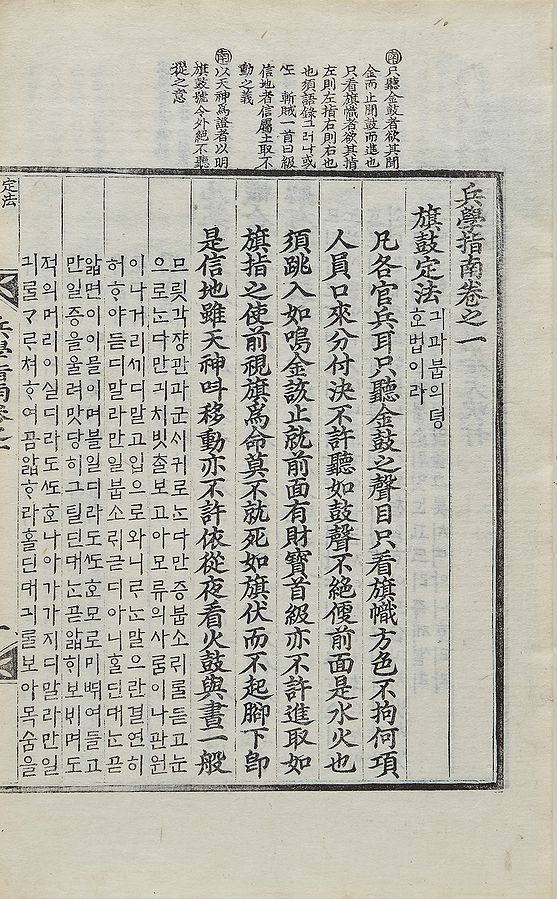 南 只聽金鼓者欲其聞
金而止聞鼓而進也
只看旗幟者欲其指
左則左指右則右也
也須語錄그러나或
斬賊一首曰級
信地者信屬土取不
動之義
南 以天神爲證者以明
旗鼓號令外絶不聽
從之意
兵學指南卷之一
旗鼓定法 긔과붑의뎡
호법이라
凡各官兵耳只聽金鼓之聲目只看旗幟方色不拘何項
人員口來分付決不許聽如鼓聲不絶便前面是水火也
須跳入如鳴金該止就前面有財寶首級亦不許進取如
旗指之使前視旗爲命莫不就死如旗伏而不起腳下卽
是信地雖天神呌移動亦不許依從夜看火鼓與晝一般
므릇각쟝관과군시귀로ᄂᆞᆫ다만증붑소리ᄅᆞᆯ듣고눈
으로ᄂᆞᆫ다만긔치빗츨보고아모류의사ᄅᆞᆷ이나관원
이나거리세디말고입으로와니르ᄂᆞᆫ말으란결연히
허ᄒᆞ야듣디말라만일붑소ᄅᆡ귿디아니ᄒᆞᆯ딘대ᄂᆞᆫ곧
앏면이이믈이며블일디라도ᄯᅩᄒᆞᆫ모로미ᄠᅱ여들고
만일증을울려맛당히그틸딘대ᄂᆞᆫ곧앏ᄒᆡ보ᄇᆡ며도
적의머리이실디라도ᄯᅩᄒᆞᆫ나아가가지디말라만일
긔ᄅᆞᆯᄀᆞᄅᆞ쳐ᄒᆞ여곰앏ᄒᆞ라ᄒᆞᆯ딘대긔ᄅᆞᆯ보아목숨을
定法
兵學指南卷之一